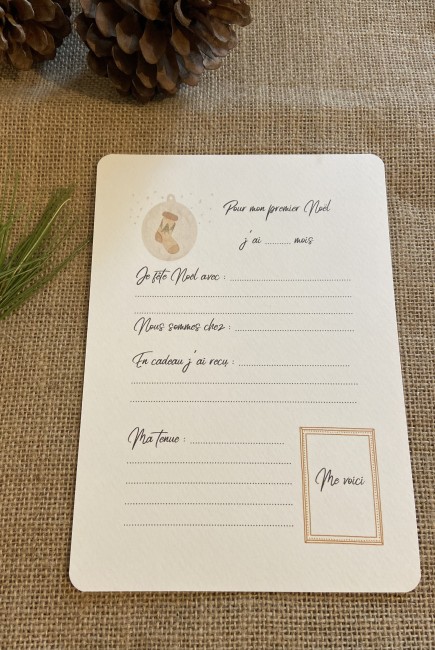 Pour mon premier Noël
j'ai ........... mois
Je fête Noël avec :
Nous sommes chez :
En cadeau j'ai reçu :
Ma tenue :
Me voici